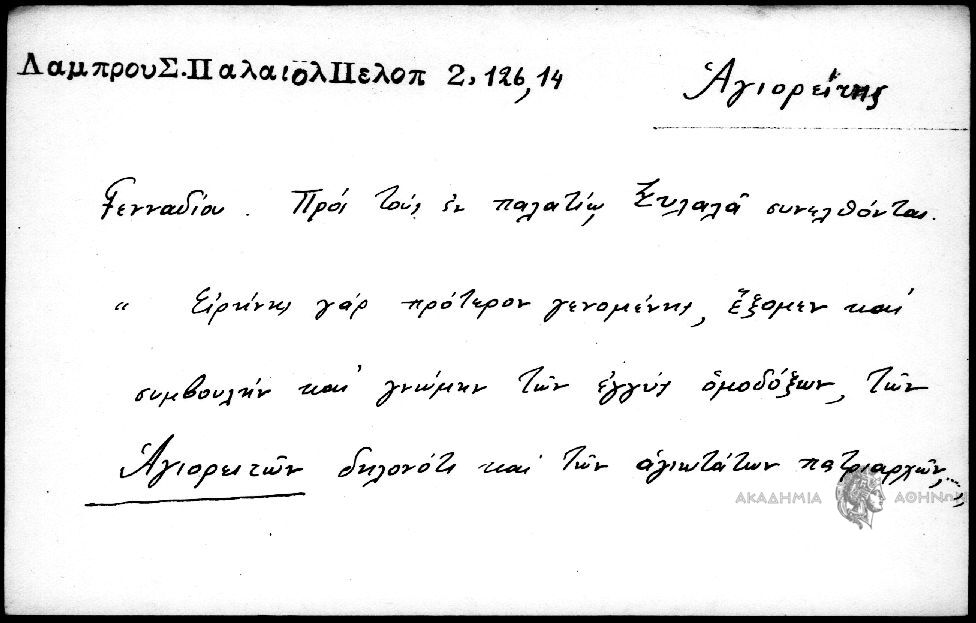 ΛαμπρουΣ.ΠαλαιολΠελοπ 2, 126, 14
Ἁγιορείτης
Γενναδίου. Πρὸς τοὺς ἐν παλατίῳ Ξυλαλᾶ συνελθόντας.
" Εἰρήνης γάρ πρότερον γενομένης, ἕξομεν καί
συμβουλήν καί γνώμην τῶν ἐγγύς ὁμοδόξων, τῶν
Ἁγιορειτῶν δηλονότι καί τῶν ἁγιωτάτων πατριαρχῶν,..."
ΑΚΑΔΗΜΙΑ ΑΘΗΝΩΝ